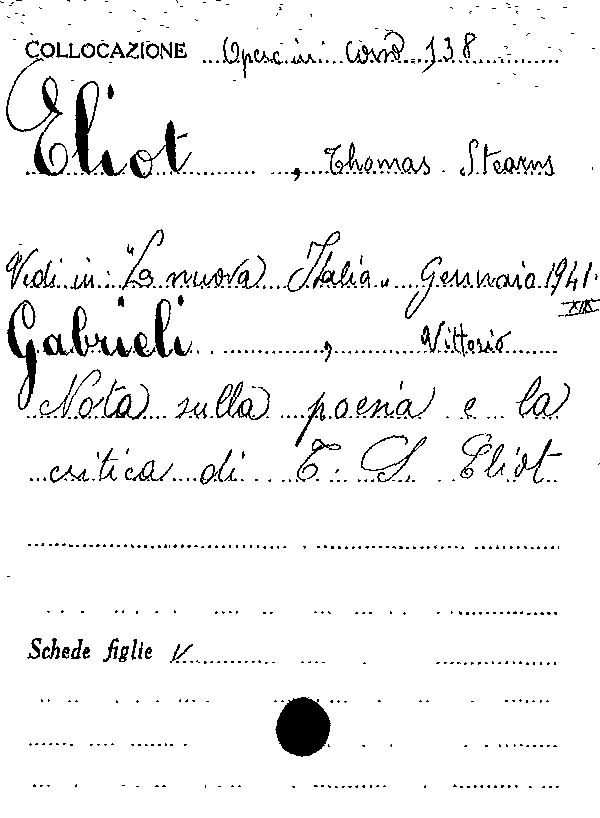 COLLOCAZIONE Opere in corso 138
Eliot, Thomas Stearns
Vedi in: "La nuova Italia" Gennaio 1941.
XIX
Gabrieli, Vittorio
Nota sulla poesia e la
critica di T. S. Eliot
Schede figlie V